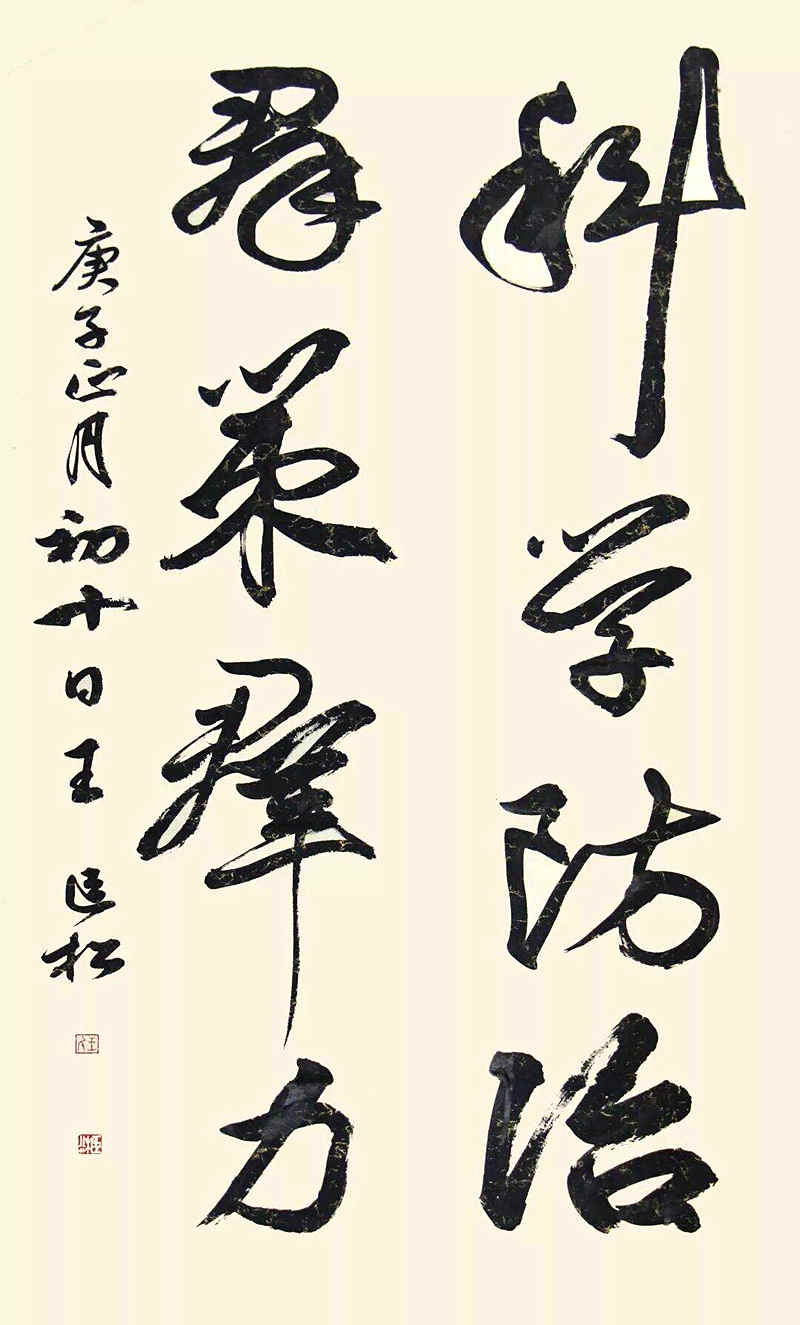 科学防治
群策群力
庚子正月初十日王匡松